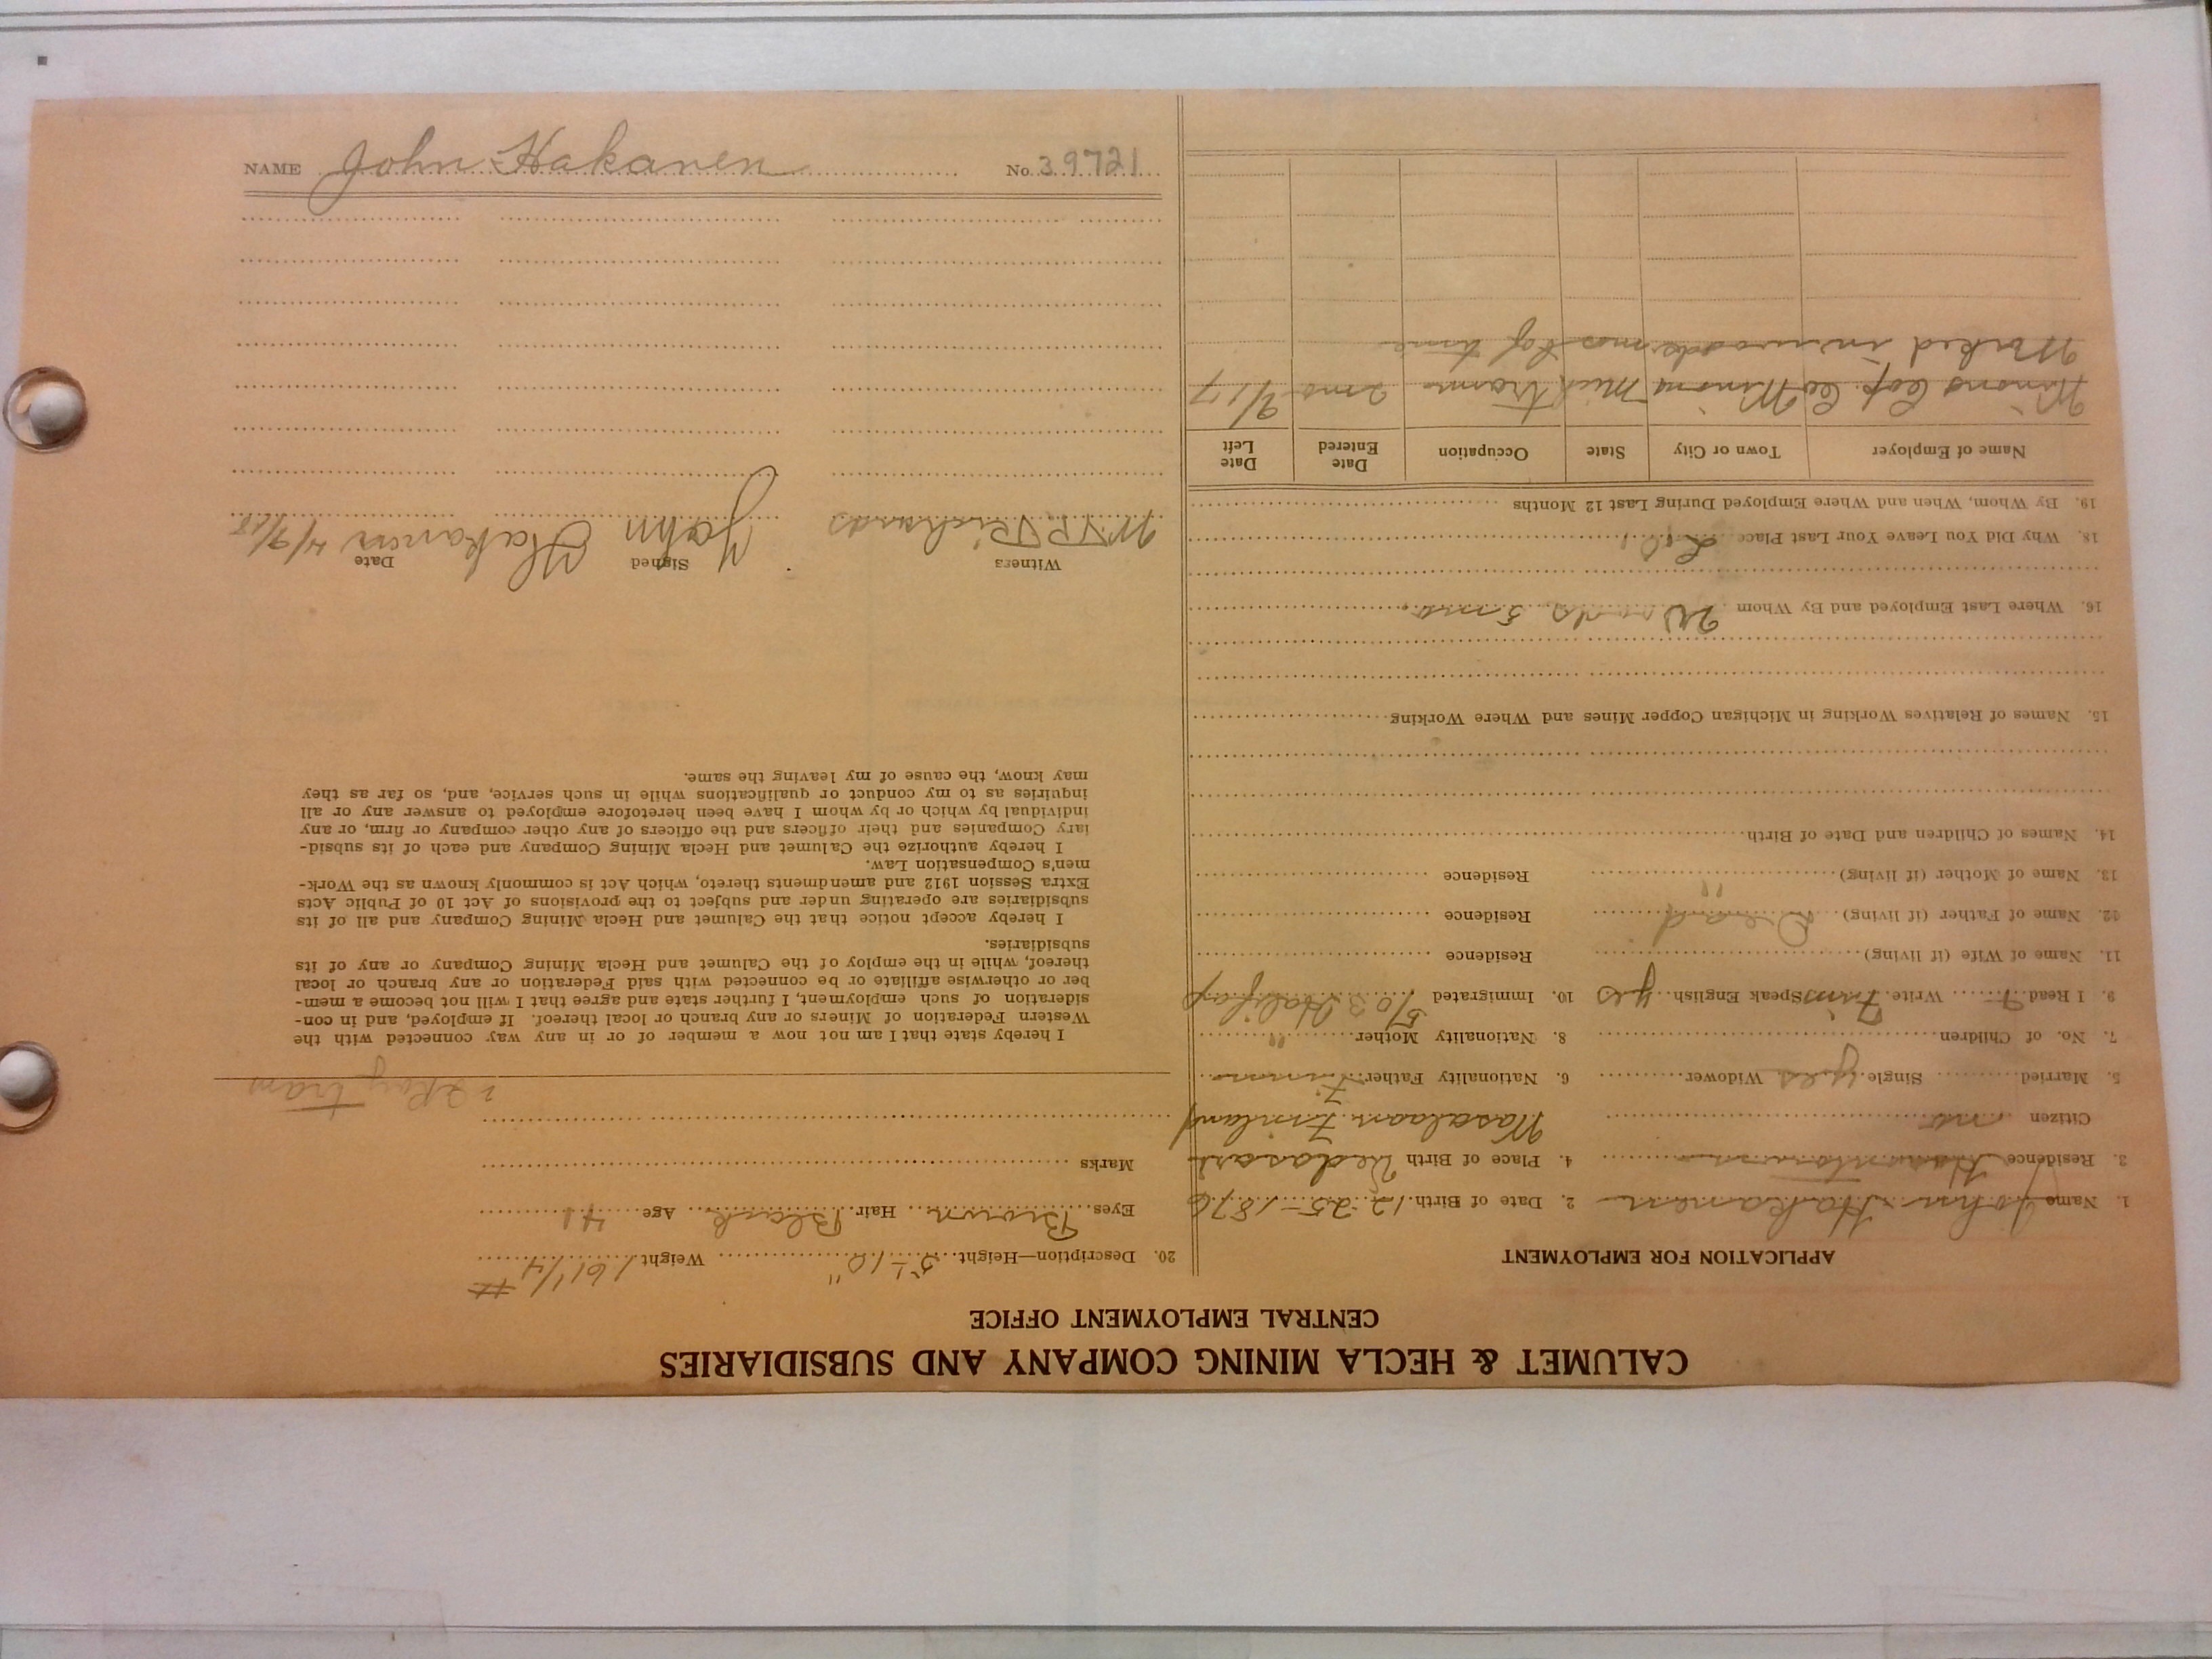 CALUMET & HECLA MINING COMPANY AND SUBSIDIARIES
CENTRAL EMPLOYMENT OFFICE
APPLICATION FOR EMPLOYMENT
1. Name John Hakanen 2. Date of Birth 12-25-1876
3. Residence 4. Place of Birth
Citizen no Finland
5. Married Single yes Widower 6. Nationality Father
7. No. of Children 8. Nationality Mother "
9. I Read F Write Finn Speak English yes 10. Immigrated 5/03 Halifax
11. Name of Wife (if living) Residence
12. Name of Father (if living) Dead Residence
13. Name of Mother (if living) " Residence
14. Names of Children and Date of Birth
15. Names of Relatives Working in Michigan Copper Mines and Where Working
16. Where Last Employed and By Whom Woods 5 mo.
18. Why Did You Leave Your Last Place
19. By Whom, When and Where Employed During Last 12 Months
Name of Employer Town or City State Occupation Date Entered Date Left
Winona Cop. Co Winona Mich Tram 2 mo 9/17
Worked in woods most of time
20. Description—Height 5'-10" Weight 161 1/4 #
Eyes Brown Hair Black Age 41
Marks
Okay tram
I hereby state that I am not now a member of or in any way connected with the
Western Federation of Miners or any branch or local thereof. If employed, and in con-
sideration of such employment, I further state and agree that I will not become a mem-
ber or otherwise affiliate or be connected with said Federation or any branch or local
thereof, while in the employ of the Calumet and Hecla Mining Company or any of its
subsidiaries.
I hereby accept notice that the Calumet and Hecla Mining Company and all of its
subsidiaries are operating under and subject to the provisions of Act 10 of Public Acts
Extra Session 1912 and amendments thereto, which Act is commonly known as the Work-
men's Compensation Law.
I hereby authorize the Calumet and Hecla Mining Company and each of its subsid-
iary Companies and their officers and the officers of any other company or firm, or any
individual by which or by whom I have been heretofore employed to answer any or all
inquiries as to my conduct or qualifications while in such service, and, so far as they
may know, the cause of my leaving the same.
Witness Signed Date
Richards John Hakanen 4/9/18
NAME John Hakanen No. 39721